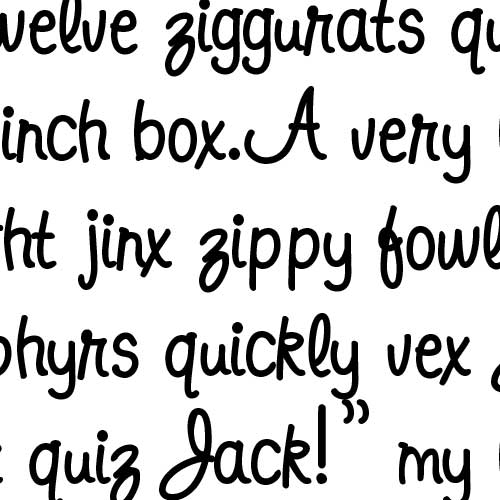 twelve ziggurats qu
inch box.A very
ht jinx zippy fowl
phyrs quickly vex
quiz Jack!” my